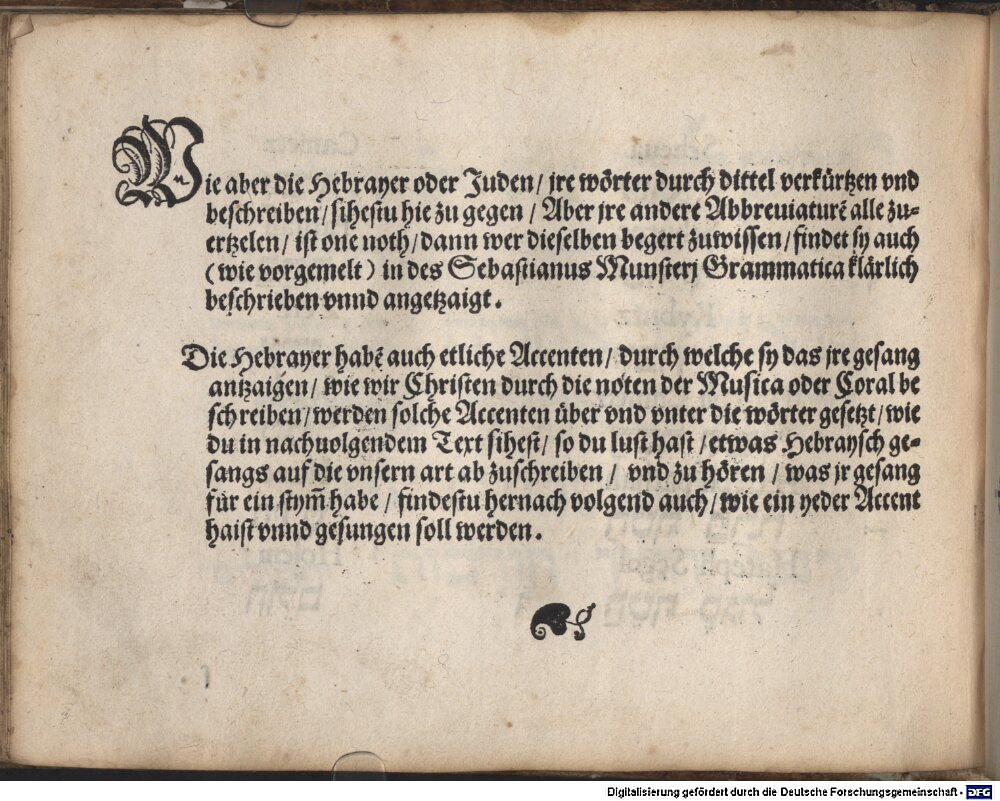 Wie aber die Hebrayer oder Juden/ jre wörter durch dittel verkürtzen vnd
beschreiben/ sihestu hie zu gegen / Aber jre andere Abbreuiaturē alle zu-
ertzelen/ ist one noth/ dann wer dieselben begert zuwissen/ findet sy auch
(wie vorgemelt) in des Sebastianus Munsterj Grammatica klärlich
beschrieben vnnd angetzaigt.
Die Hebrayer habē auch etliche Accenten/ durch welche sy das jre gesang
antzaigen/ wie wir Christen durch die noten der Musica oder Coral be
schreiben/ werden solche Accenten über vnd vnter die wörter gesetzt/ wie
du in nachuolgendem Text sihest/ so du lust hast/ etwas Hebraysch ge-
sangs auf die vnsern art ab zuschreiben / vnd zu hören / was jr gesang
für ein stym̄ habe / findestu hernach volgend auch/ wie ein yeder Accent
haist vnnd gesungen soll werden.
Digitalisierung gefördert durch die Deutsche Forschungsgemeinschaft - DFG